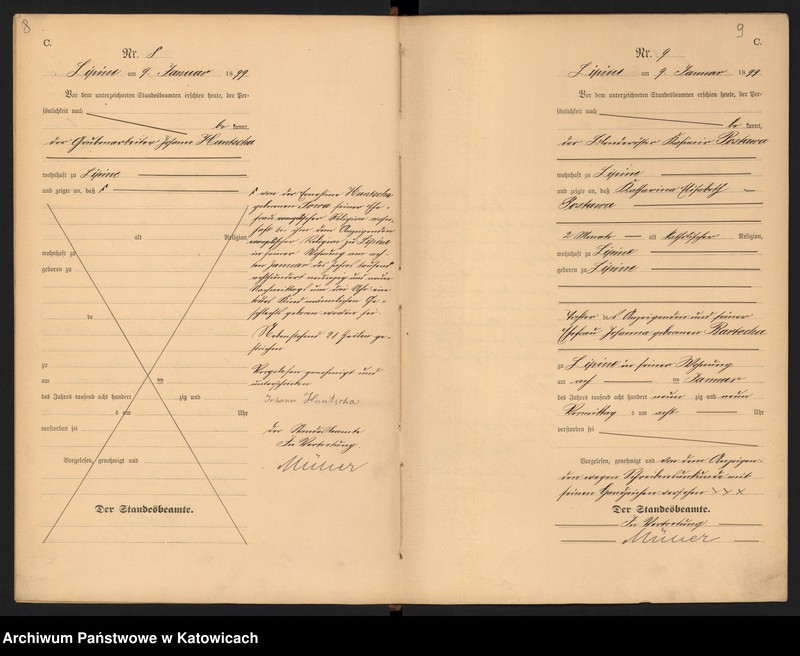 8
C.
Nr. 8
Lipine am 9. Januar 1899
Vor dem unterzeichneten Standesbeamten erschien heute, der Per-
sönlichkeit nach
be kannt,
der Grubenarbeiter Johann Hantscha
wohnhaft zu Lipine
und zeigte an, daß
alt Religion,
wohnhaft zu
geboren zu
de
zu
am ten
des Jahres tausend acht hundert zig und
um Uhr
verstorben sei
Vorgelesen, genehmigt und
Der Standesbeamte.
von der Ernestine Hantscha
geborenen Sowa seiner Ehe-
frau Religion wohn-
haft bei ihm dem Anzeigenden
Religion zu Lipine
in seiner Wohnung am ach-
ten Januar des Jahres tausend
achthundert neunzig und neun
Nachmittags um drei Uhr ein
todtes Kind männlichen Ge-
schlechts geboren worden sei.
Nebenstehend 21 Zeilen ge-
strichen
Vorgelesen genehmigt und
unterschrieben
Johann Huntscha
Der Standesbeamte
In Vertretung.
Müller
9
C.
Nr. 9
Lipine am 9. Januar 1899
Vor dem unterzeichneten Standesbeamten erschien heute, der Per-
sönlichkeit nach
be kannt,
der Kasimir Postawa
wohnhaft zu Lipine
und zeigte an, daß Katharina Elisabeth
Postawa
2 Monate alt katholischer Religion,
wohnhaft zu Lipine
geboren zu Lipine
Tochter des Anzeigenden und seiner
Ehefrau Johanna geborenen
zu Lipine in seiner Wohnung
am ach ten Januar
des Jahres tausend acht hundert neun zig und neun
Vormittag s um acht Uhr
verstorben sei
Vorgelesen, genehmigt und von dem Anzeigen-
den wegen Schreibensunkunde mit
seinem Handzeichen versehen XXX
Der Standesbeamte.
In Vertretung
Müller
Archiwum Państwowe w Katowicach